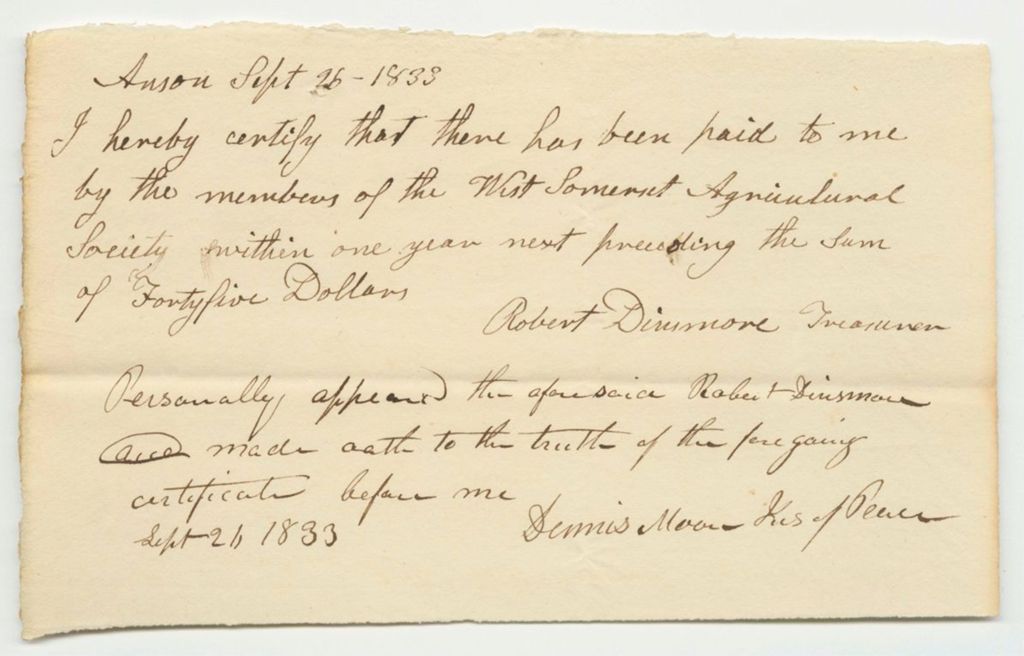 Anson Sept 26 - 1833
I hereby certify that there has been paid to me
by the members of the West Somerset Agricultural
Society within one year next preceding the sum
of Fortyfive Dollars
Robert Dinsmore Treasurer
Personally appeared the aforesaid Robert Dinsmore
and made oath to the truth of the foregoing
certificate before me
Sept 26 1833
Dennis Moore Jus of Peace